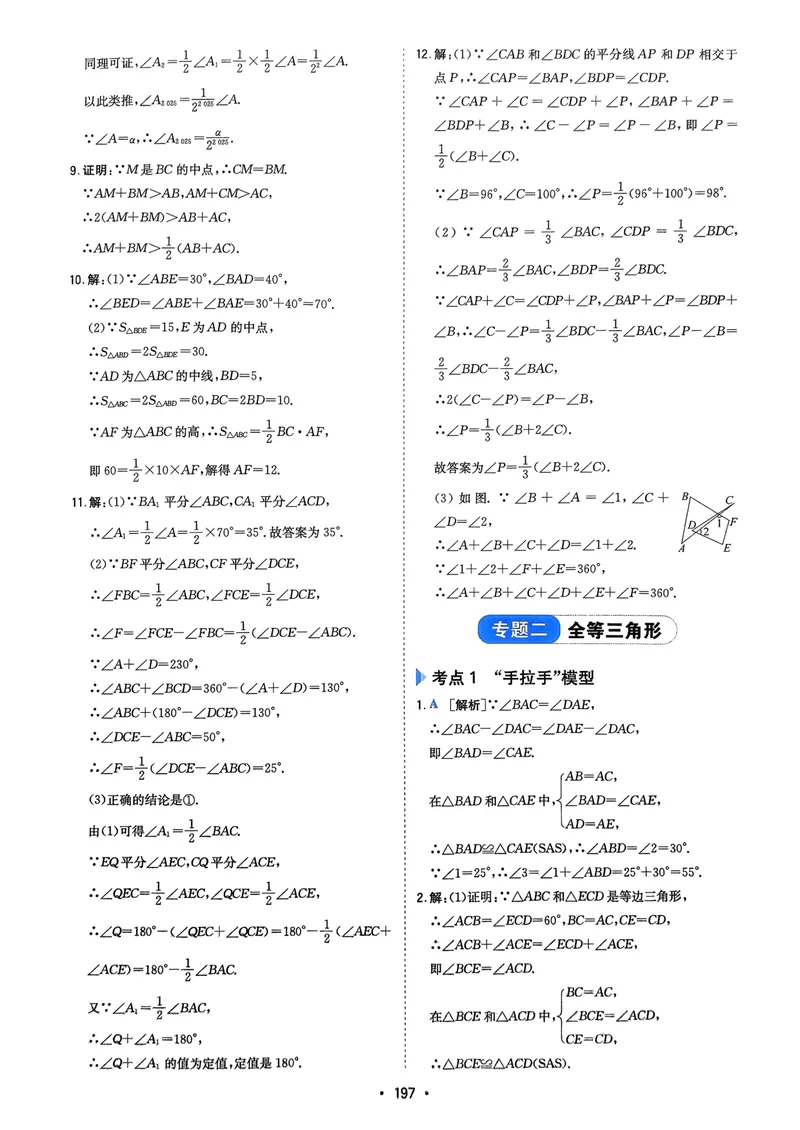 同理可证,∠A₂=1/2∠A₁=1/2×1/2∠A=1/2²∠A.
以此类推,∠A₂₀₂₅=1/2²⁰²⁵∠A.
∵∠A=α,∴∠A₂₀₂₅=α/2²⁰²⁵.
9.证明:∵M是BC的中点,∴CM=BM.
∵AM+BM>AB,AM+CM>AC,
∴2(AM+BM)>AB+AC,
∴AM+BM>1/2(AB+AC).
10.解:(1)∵∠ABE=30°,∠BAD=40°,
∴∠BED=∠ABE+∠BAE=30°+40°=70°.
(2)∵S△BDE=15,E为AD的中点,
∴S△ABD=2S△BDE=30.
∵AD为△ABC的中线,BD=5,
∴S△ABC=2S△ABD=60,BC=2BD=10.
∵AF为△ABC的高,∴S△ABC=1/2BC·AF,
即60=1/2×10×AF,解得AF=12.
11.解:(1)∵BA₁平分∠ABC,CA₁平分∠ACD,
∴∠A₁=1/2∠A=1/2×70°=35°.故答案为35°.
(2)∵BF平分∠ABC,CF平分∠DCE,
∴∠FBC=1/2∠ABC,∠FCE=1/2∠DCE,
∴∠F=∠FCE-∠FBC=1/2(∠DCE-∠ABC).
∵∠A+∠D=230°,
∴∠ABC+∠BCD=360°-(∠A+∠D)=130°,
∴∠ABC+(180°-∠DCE)=130°,
∴∠DCE-∠ABC=50°,
∴∠F=1/2(∠DCE-∠ABC)=25°.
(3)正确的结论是①.
由(1)可得∠A₁=1/2∠BAC.
∵EQ平分∠AEC,CQ平分∠ACE,
∴∠QEC=1/2∠AEC,∠QCE=1/2∠ACE,
∴∠Q=180°-(∠QEC+∠QCE)=180°-1/2(∠AEC+
∠ACE)=180°-1/2∠BAC.
又∵∠A₁=1/2∠BAC,
∴∠Q+∠A₁=180°,
∴∠Q+∠A₁的值为定值,定值是180°.
12.解:(1)∵∠CAB和∠BDC的平分线AP和DP相交于
点P,∴∠CAP=∠BAP,∠BDP=∠CDP.
∵∠CAP+∠C=∠CDP+∠P,∠BAP+∠P=
∠BDP+∠B,∴∠C-∠P=∠P-∠B,即∠P=
1/2(∠B+∠C).
∵∠B=96°,∠C=100°,∴∠P=1/2(96°+100°)=98°.
(2)∵∠CAP=1/3∠BAC,∠CDP=1/3∠BDC,
∴∠BAP=2/3∠BAC,∠BDP=2/3∠BDC.
∵∠CAP+∠C=∠CDP+∠P,∠BAP+∠P=∠BDP+
∠B,∴∠C-∠P=1/3∠BDC-1/3∠BAC,∠P-∠B=
2/3∠BDC-2/3∠BAC,
∴2(∠C-∠P)=∠P-∠B,
∴∠P=1/3(∠B+2∠C).
故答案为∠P=1/3(∠B+2∠C).
(3)如图.∵∠B+∠A=∠1,∠C+
∠D=∠2,
∴∠A+∠B+∠C+∠D=∠1+∠2.
∵∠1+∠2+∠F+∠E=360°,
∴∠A+∠B+∠C+∠D+∠E+∠F=360°.
B C
D 1 F
2
A E
专题二 全等三角形
考点1 “手拉手”模型
1.A [解析]∵∠BAC=∠DAE,
∴∠BAC-∠DAC=∠DAE-∠DAC,
即∠BAD=∠CAE.
AB=AC,
在△BAD和△CAE中,{∠BAD=∠CAE,
AD=AE,
∴△BAD≌△CAE(SAS),∴∠ABD=∠2=30°.
∵∠1=25°,∴∠3=∠1+∠ABD=25°+30°=55°.
2.解:(1)证明:∵△ABC和△ECD是等边三角形,
∴∠ACB=∠ECD=60°,BC=AC,CE=CD,
∴∠ACB+∠ACE=∠ECD+∠ACE,
即∠BCE=∠ACD.
BC=AC,
在△BCE和△ACD中,{∠BCE=∠ACD,
CE=CD,
∴△BCE≌△ACD(SAS).
·197·